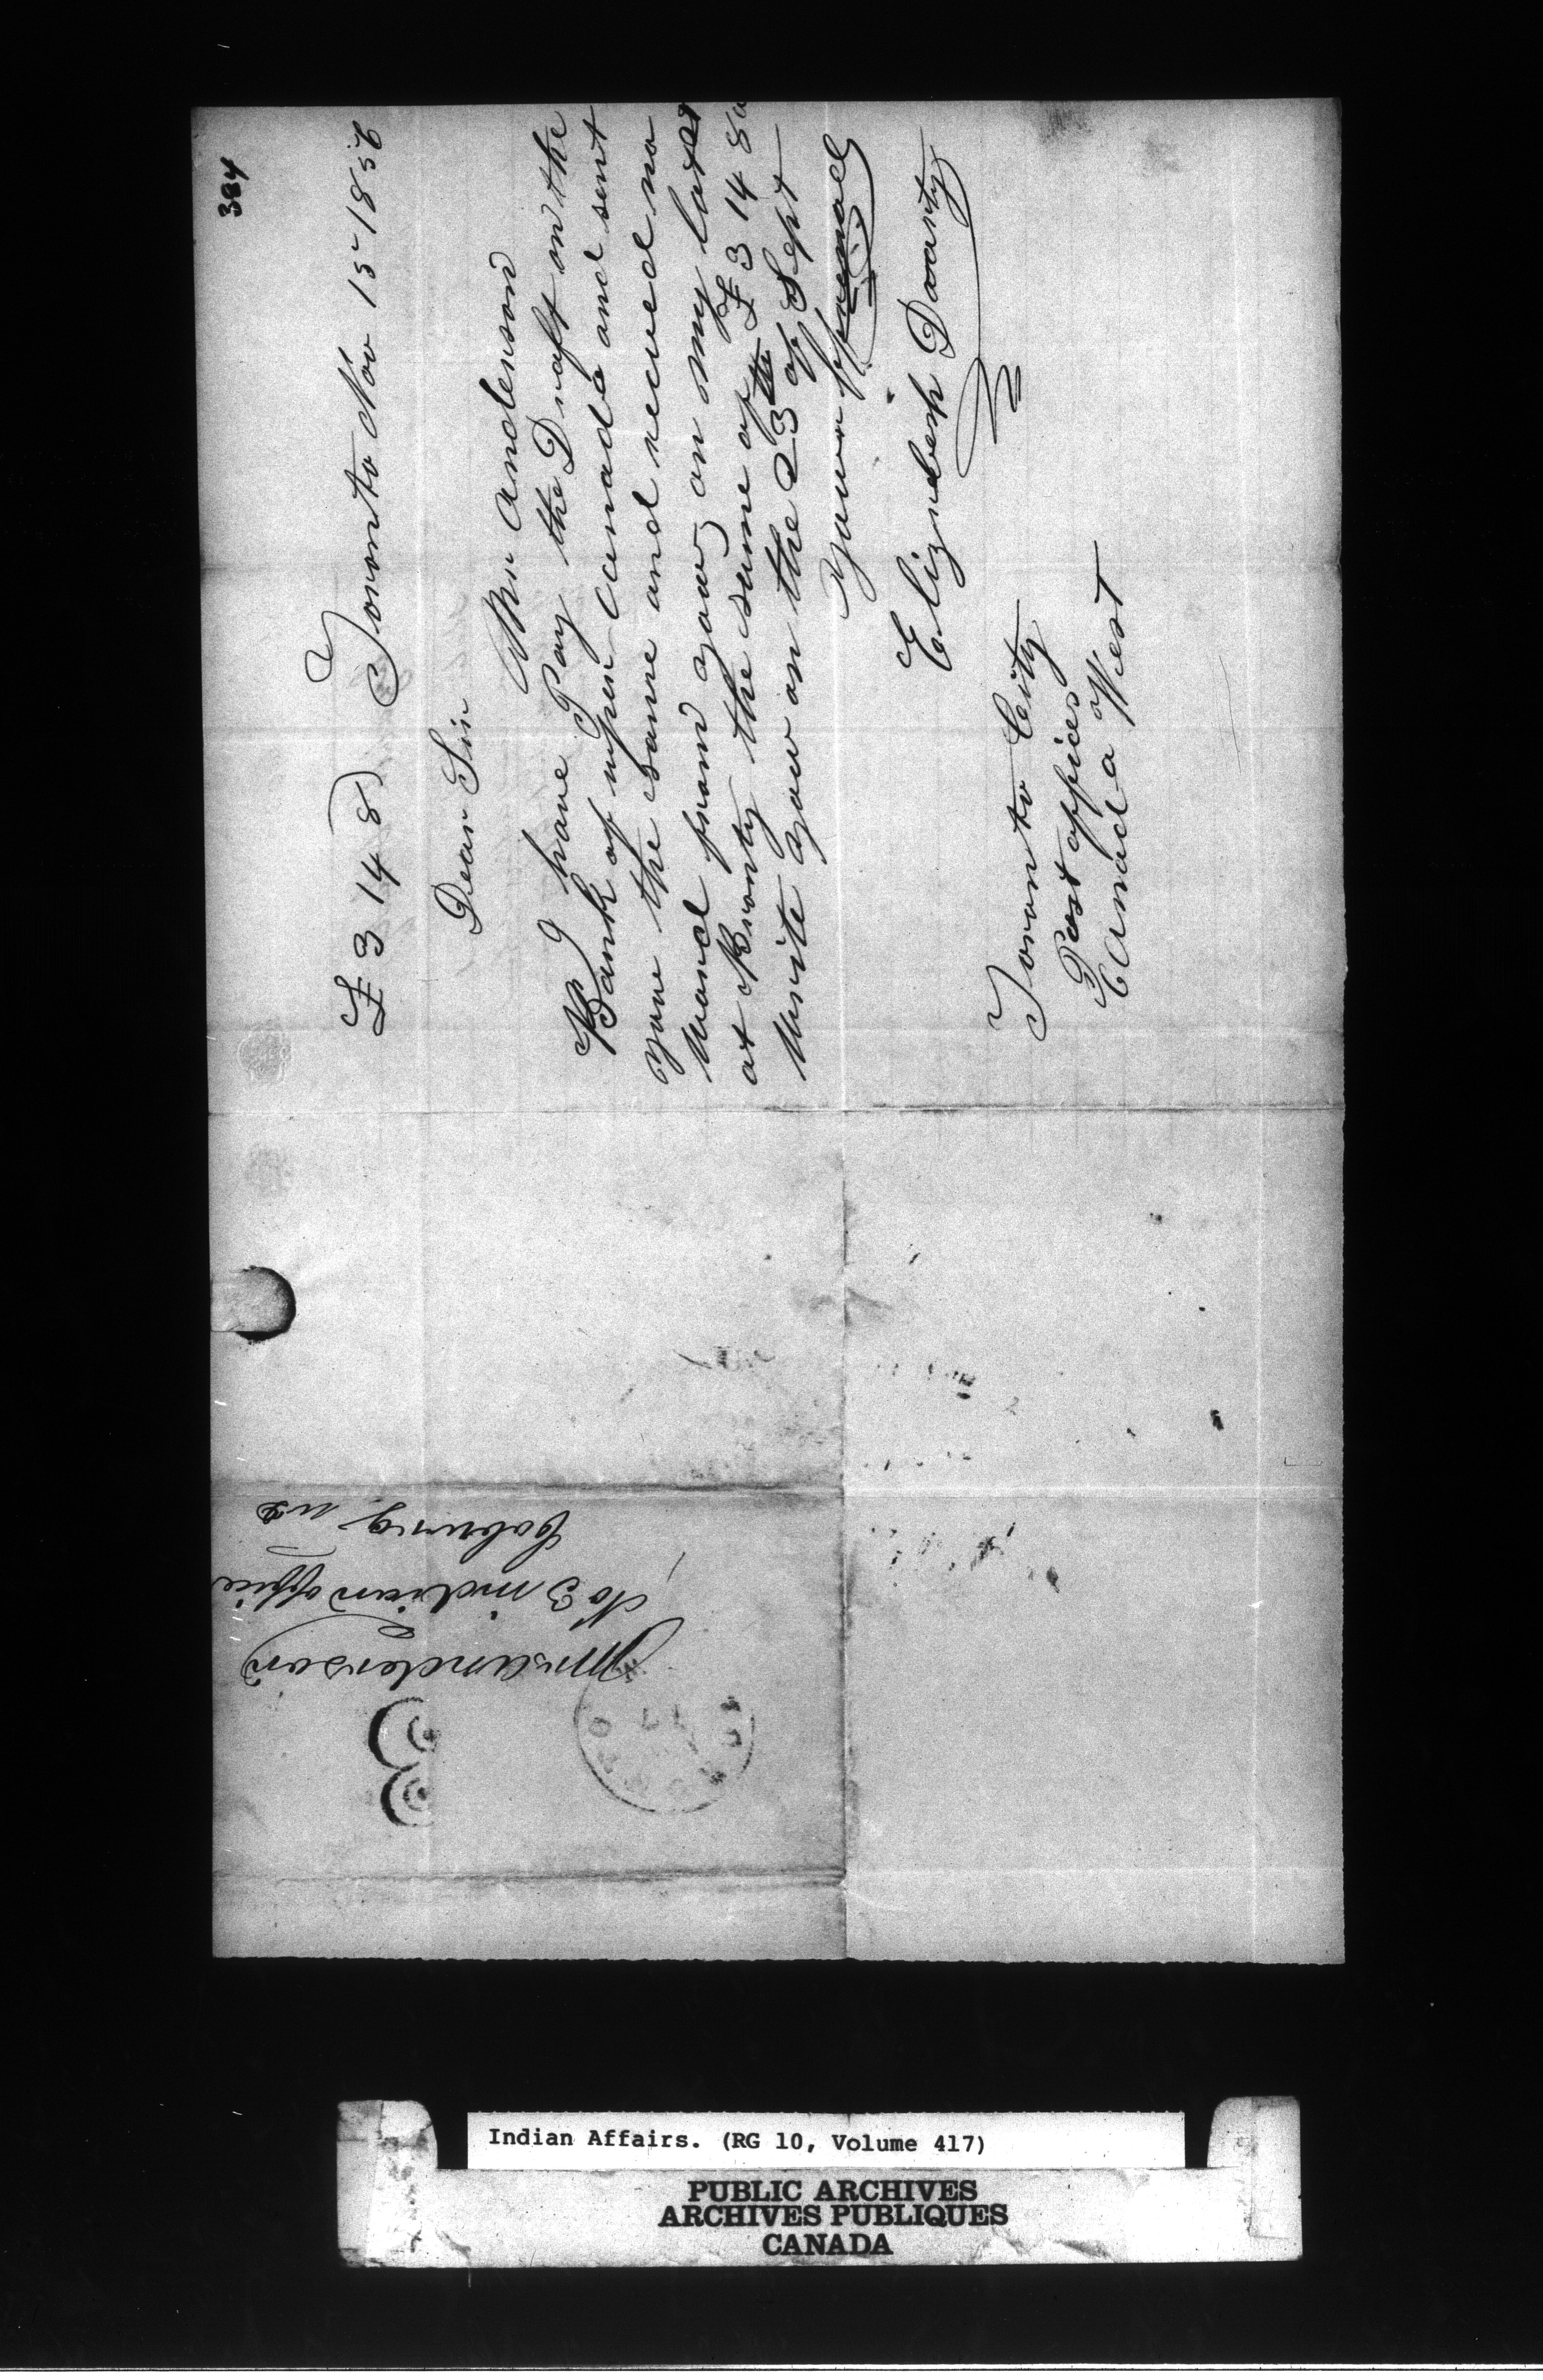 384
£ 3 14 8) Toronto Nov 15 1856
Dear Sir
Mr Anderson
I have Pay the Draft on the
Bank of uper Canada and sent
yove the same and recived no
Word from yow on my Lot
at Bronty the sume of the £ 3 14 8
Write yow on the 23 of Sept
Elizabeth Doarty
Toronto City
Post office
Canada West
Mr anderson
No 3 indian office
Coburg
Indian Affairs. (RG 10, Volume 417)
PUBLIC ARCHIVES
ARCHIVES PUBLIQUES
CANADA